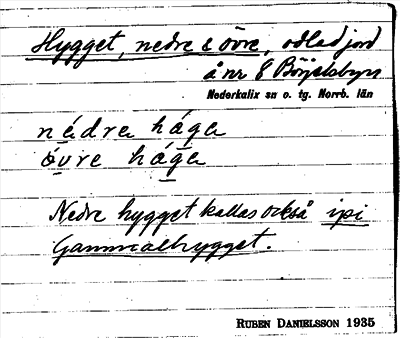 Hygget, nedre & övre, odlad jord
å nr 8 Börjelsbyn
Nederkalix sn o. tg. Norrb. län
nédra hága
óvre hága
Nedre hygget kallas också ipi
Gammalhygget.
RUBEN DANIELSSON 1935